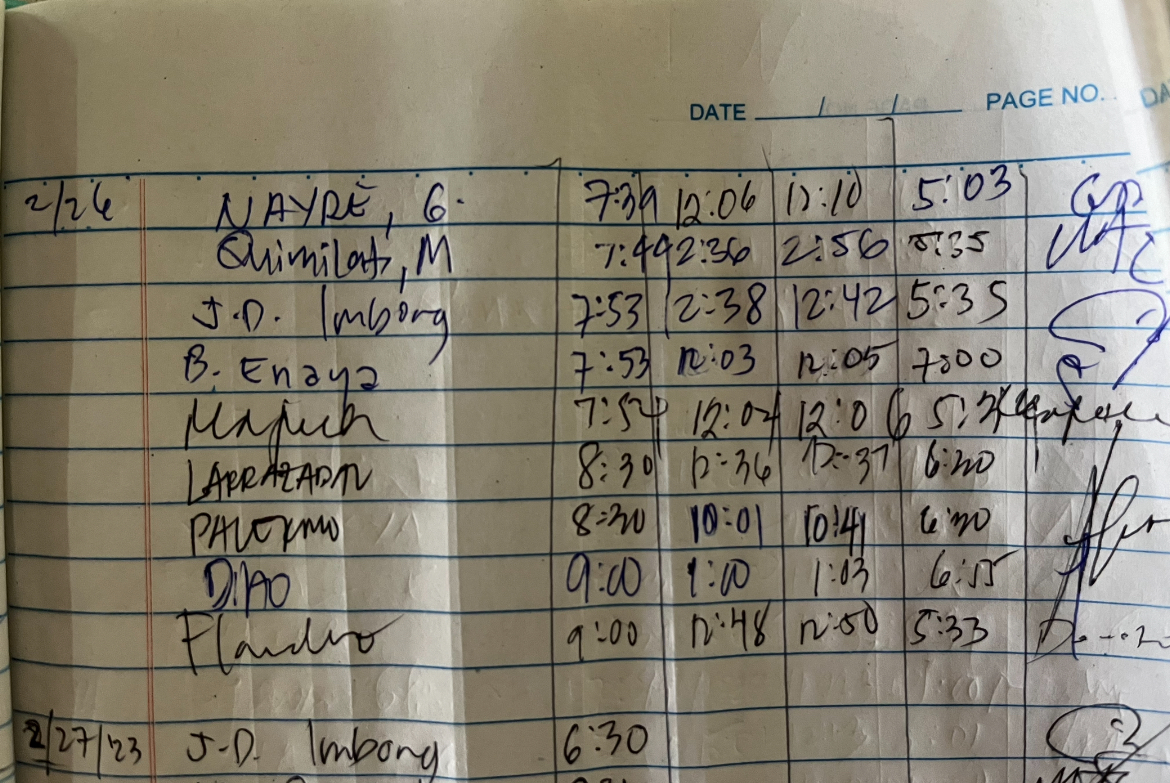 DATE / / PAGE NO. DA
2/26 NAYRE, G. 7:39 12:06 12:10 5:03
Quimilat, M 7:44 2:36 2:56 5:35
J.D. Imbong 7:53 12:38 12:42 5:35
B. Enaya 7:53 12:03 12:05 7:00
12:06
8:30 12:36 12:37 6:20
PALERMO 8:30 10:01 10:41 6:20
DILAO 9:00 1:00 1:03 6:55
9:00 12:48 12:50 5:33
2/27/23 J.D. Imbong 6:30